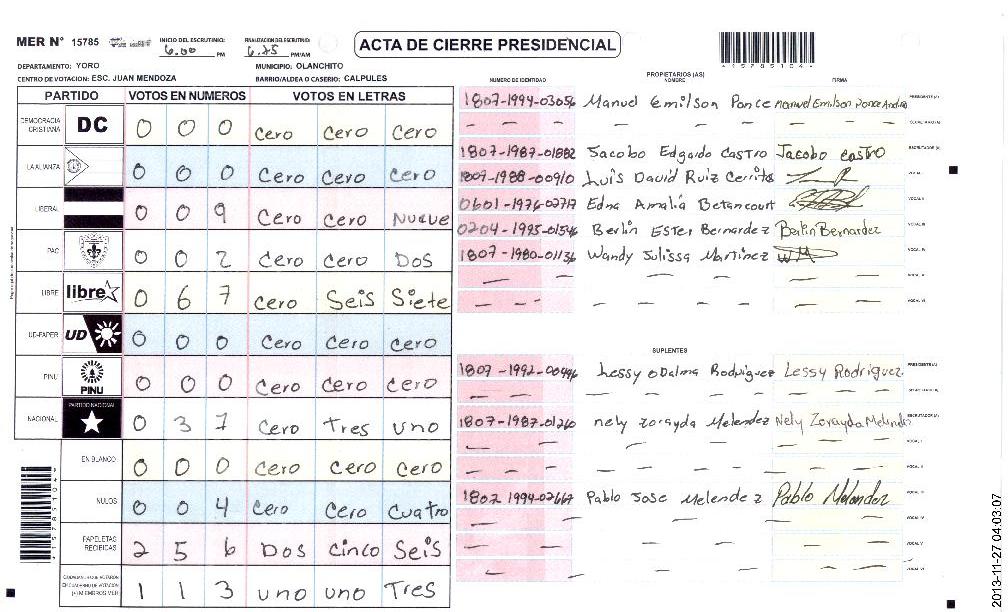 MER Nº 15785
INICIO DEL ESCRUTINIO: 6.00 PM
FINALIZACION DEL ESCRUTINIO: 6.25 PM/AM
ACTA DE CIERRE PRESIDENCIAL
DEPARTAMENTO: YORO
MUNICIPIO: OLANCHITO
CENTRO DE VOTACION: ESC. JUAN MENDOZA
BARRIO/ALDEA O CASERIO: CALPULES
PARTIDO VOTOS EN NUMEROS VOTOS EN LETRAS
DEMOCRACIA CRISTIANA DC 0 0 0 cero cero cero
LA ALIANZA 0 0 0 cero cero cero
LIBERAL 0 0 9 cero cero Nueve
PAC 0 0 2 cero cero Dos
LIBRE libre 0 6 7 cero Seis Siete
UD-FAPER UD 0 0 0 cero cero cero
PINU PINU 0 0 0 cero cero cero
NACIONAL PARTIDO NACIONAL 0 3 1 cero tres uno
EN BLANCO 0 0 0 cero cero cero
NULOS 0 0 4 cero cero cuatro
PAPELETAS RECIBICAS 2 5 6 Dos cinco Seis
CIUDADANOS QUE VOTARON EN CUADERNO DE VOTACION (+) MIEMBROS MER 1 1 3 uno uno Tres
PROPIETARIOS (AS)
NUMERO DE IDENTIDAD NOMBRE FIRMA
1807-1994-03056 Manuel Emilson Ponce Manuel Emilson Ponce PRESIDENTE(A)
– – – – – – – SECRETARIO(A)
1807-1987-01882 Jacobo Edgardo Castro Jacobo Castro ESCRUTADOR (A)
1807-1988-00910 Luis David Ruiz Cerrito VOCAL I
0601-1976-02717 Edna Amalia Betancourt VOCAL II
0204-1995-01546 Berlin Ester Bernardez Berlin Bernardez VOCAL III
1807-1980-01136 Wandy Julissa Martinez VOCAL IV
– – – – VOCAL V
– – – – – – – VOCAL VI
SUPLENTES
1807-1992-00496 Lessy Dalma Rodriguez Lessy Rodriguez PRESIDENTE(A)
– – – – – – – SECRETARIO(A)
1807-1987-01260 nely zorayda Melendez Nely Zorayda Melendez ESCRUTADOR (A)
– – – – VOCAL I
– – – – – – – VOCAL II
1807 1994-02667 Pablo Jose Melendez Pablo Melendez VOCAL III
– – – – VOCAL IV
– – – – VOCAL V
– – – – VOCAL VI
2013-11-27 04:03:07